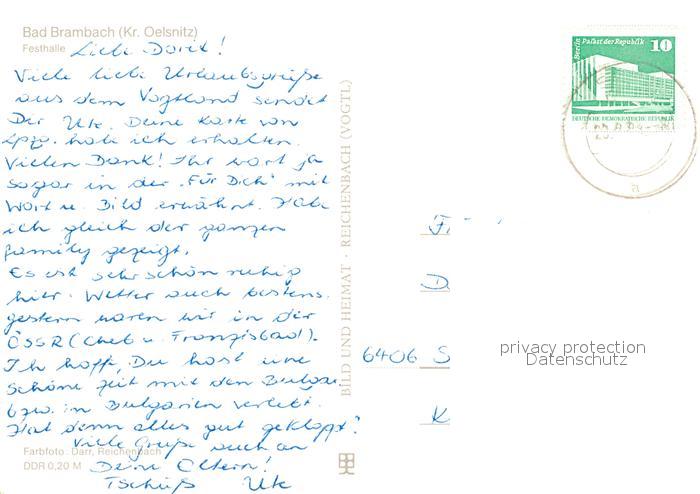 Bad Brambach (Kr. Oelsnitz)
Festhalle
Liebe Dorit!
Viele liebe Urlaubsgrüße
aus dem Vogtland sendet
Dir Ute. Deine Karte von
Lpzg. hab ich erhalten.
Vielen Dank! Ihr wart ja
sogar in der "Für Dich" mit
Wort u. Bild erwähnt. Habe
ich gleich der ganzen
family gezeigt.
Es ist sehr schön ruhig
hier. Wetter auch bestens.
gestern waren wir in der
ČSSR (Cheb u. Franzisbad).
Ich hoffe, Du hast eine
schöne Zeit mit den
bzw. in Bulgarien verlebt.
Hat denn alles gut geklappt?
Viele Grüße auch an
Deine Eltern!
Tschüß Ute
Farbfoto: Darr, Reichenbach
DDR 0,20 M
BILD UND HEIMAT · REICHENBACH (VOGTL)
Berlin Palast der Republik 10
DEUTSCHE DEMOKRATISCHE REPUBLIK
F.
D
6406 S
K
privacy protection
Datenschutz